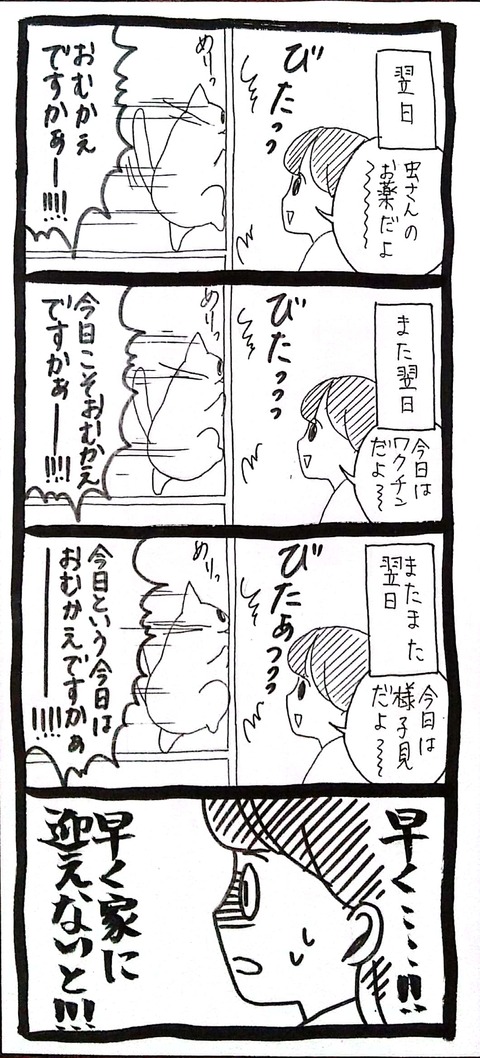 翌日
虫さんの
お薬だよ
〜〜〜
びたっっ
めりっ
おむかえ
ですかぁー!!!!
また翌日
今日は
ワクチン
だよ〜〜
びたっっっ
めりっ
今日こそおむかえ
ですかぁー!!!!
またまた
翌日
今日は
様子見
だよ〜〜
びたぁっっっ
めりっ
今日という今日は
おむかえですかぁ
ー!!!!
早く…!!
早く家に
迎えないと!!!